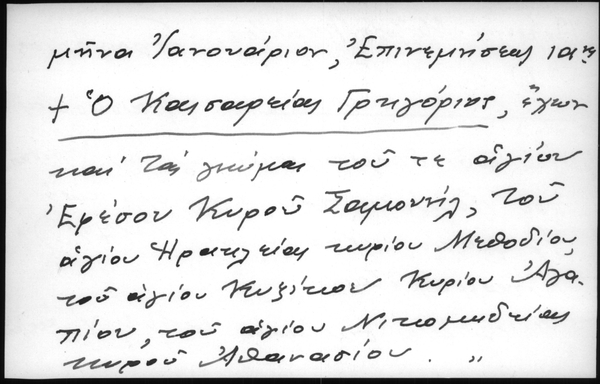 μῆνα Ἰανουάριον, Ἐπινεμήσεως ιαης
+ Ὁ Καισαρείας Γρηγόριος, ἔχων
καί τάς γνώμας τοῦ τε ἁγίου
Ἐφέσου Κυροῦ Σαμουήλ, τοῦ
ἁγίου Ἡρακλείας κυρίου Μεθοδίου,
τοῦ ἁγίου Κυζίκου Κυρίου Ἀγα-
πίου, τοῦ ἁγίου Νικομηδείας
κυροῦ Ἀθανασίου. „